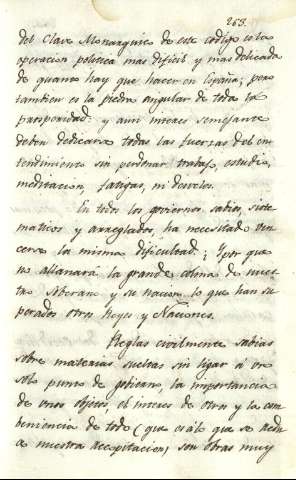 263.
del Clave Monarquico de este codigo es la
operacion politica mas dificil y mas delicada
de quanto hay que hacer en España; pero
tambien es la piedra angular de toda la
prosperidad: y aun interes semejante
deben dedicarse todas las fuerzas del en
tendimiento sin perdonar trabajo, estudio,
meditacion fatigas, ni desvelos.
En todos los goviernos sabios, siste
maticos y arreglados, ha necesitado ven
cerse la misma dificultad. ¿Y por que
no allanará la grande alma de nues
tro Soberano y su nacion lo que han su
perado otros Reyes y Naciones.
Reglas civilmente sabias
sobre materias sueltas sin ligar á un
solo punto de govierno, la importancia
de unos objetos, el interes de otros y la com
beniencia de todo (que es a lo que se
a nuestra acepitacion) son obras muy